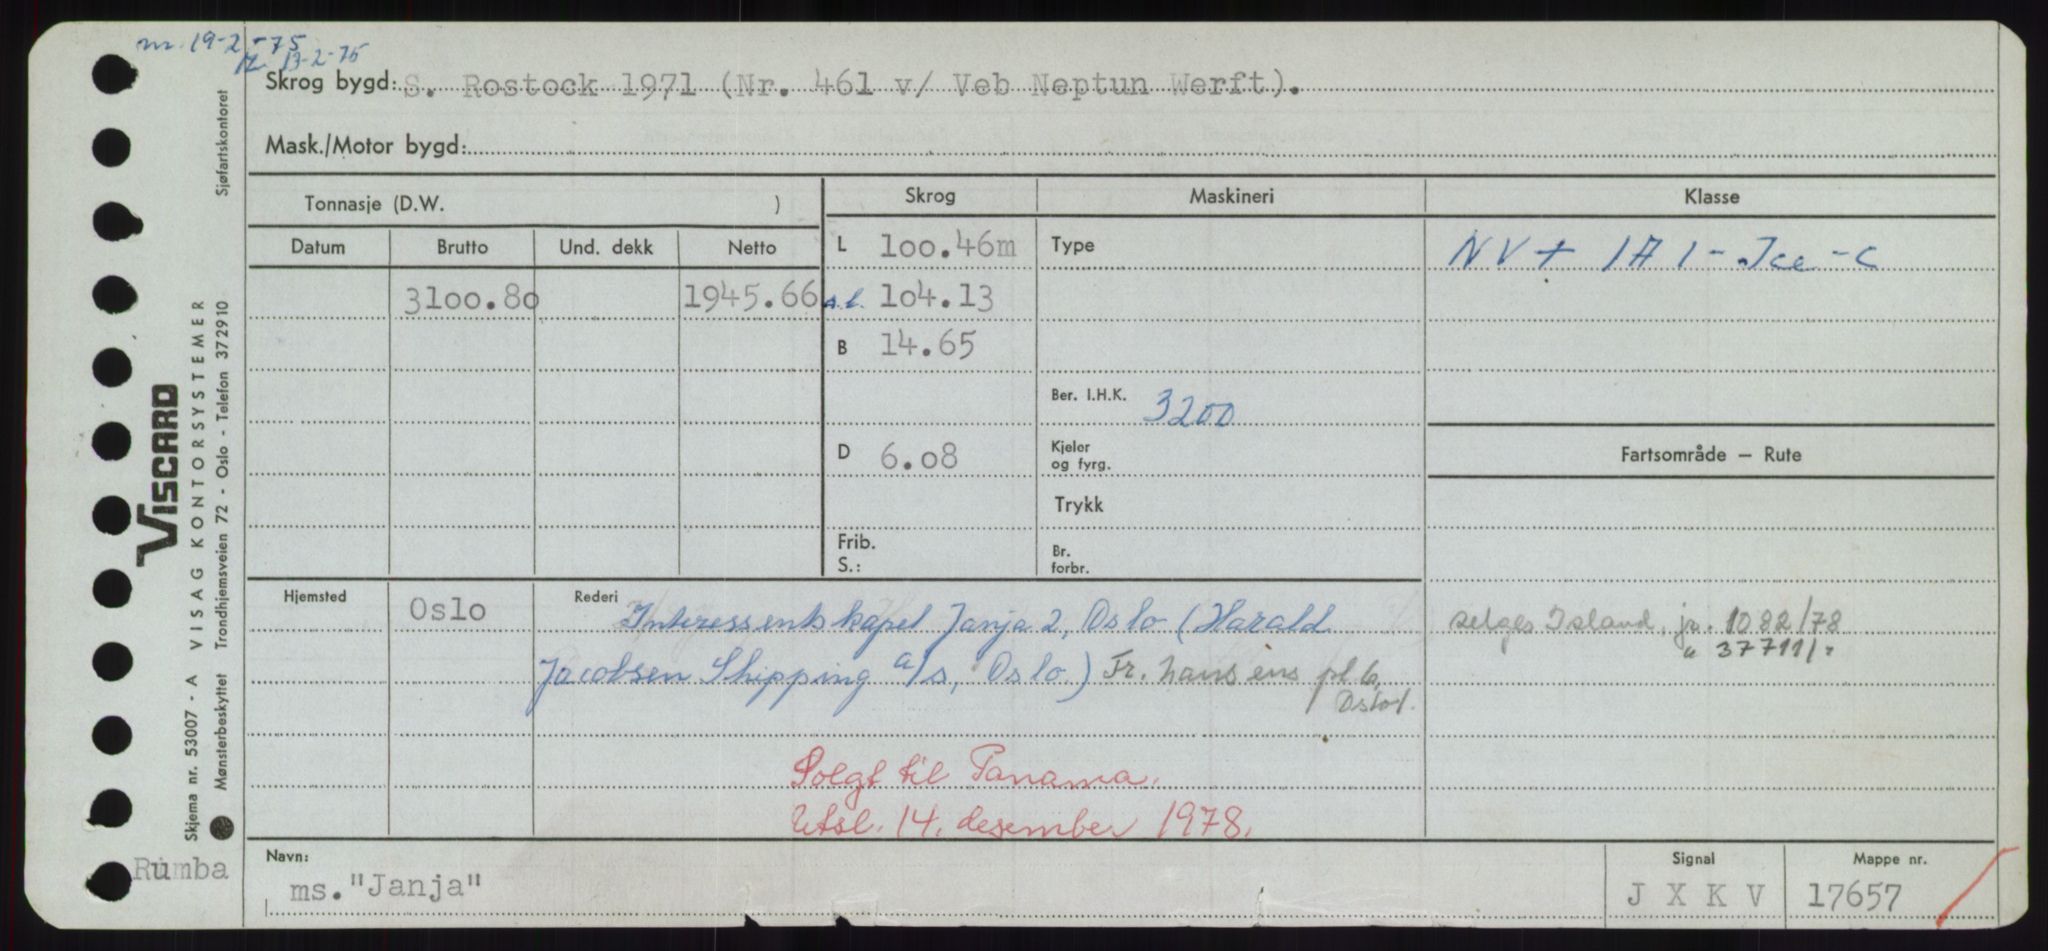 m. 19-2-75
M. 13-2-75
Skrog bygd: S. Rostock 1971 (Nr. 461 v/ Veb Neptun Werft).
Mask./Motor bygd:
Tonnasje (D.W. )
Skrog
Maskineri
Klasse
Datum Brutto Und. dekk Netto
L 100.46m
Type
NV + 1A1 - Ice - C
3100.80 1945.66
a.l. 104.13
B 14.65
Ber. I.H.K. 3200
D 6.08
Kjeler
og fyrg.
Fartsområde — Rute
Trykk
Frib.
S.:
Br.
forbr.
Hjemsted Oslo
Rederi Interessentskapet Janja 2, Oslo (Harald
Jacobsen Shipping a/s, Oslo.) Fr. Nansens pl 6,
Oslo 1.
selges Island, jr. 1082/78
" 37711/"
Solgt til Panama.
Utsl. 14. desember 1978.
Rumba
Navn:
ms. "Janja"
Signal
J X K V
Mappe nr.
17657
VISCARD
Skjema nr. 53007 - A VISAG KONTORSYSTEMER
Mønsterbeskyttet Trondhjemsveien 72 - Oslo - Telefon 372910 Sjøfartskontoret